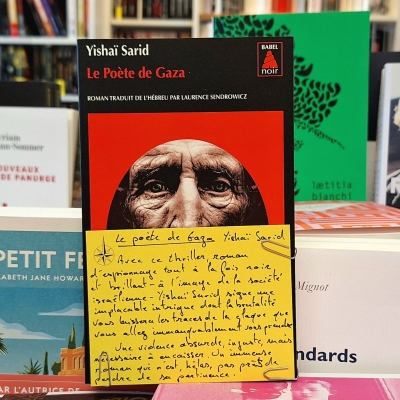 Yishaï Sarid
Le Poète de Gaza
ROMAN TRADUIT DE L'HÉBREU PAR LAURENCE SENDROWICZ
BABEL
noir
Le poète de Gaza Yishaï Sarid
Avec ce thriller, roman
d'espionnage tout à la fois noir
et brillant - à l'image de la société
israélienne - Yishaï Sarid signe une
implacable intrigue dont la brutalité
vous laissera les traces de la claque que
vous allez immanquablement vous prendre.
Une violence absurde, injuste, mais
nécessaire à encaisser. Un immense
roman qui n'est, hélas, pas près de
perdre de sa pertinence.
OUVEAUX
DE PANURGE
PETIT FE
ABETH JANE HOWAR
AR L'AUTRICE DE
lætitia
bianchi
Mignot
ndards